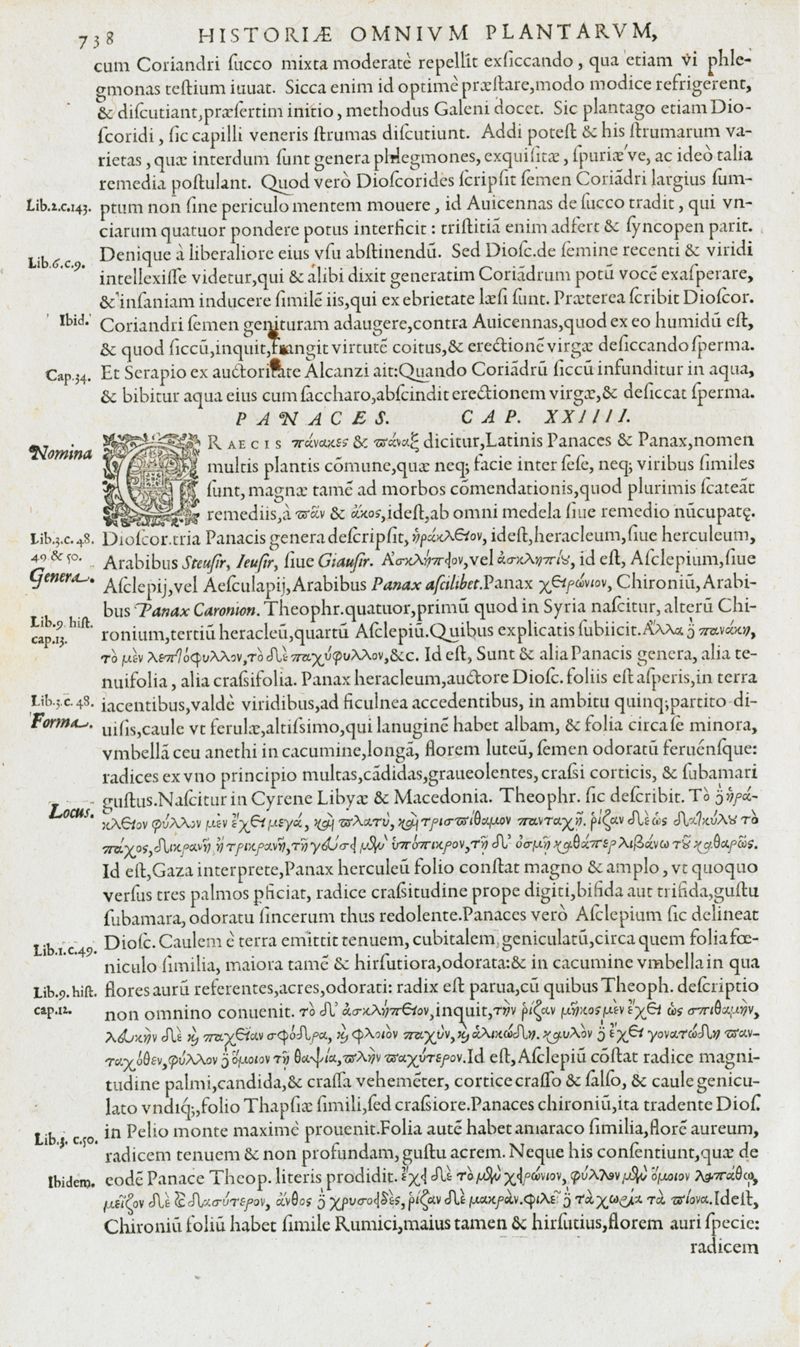 738 HISTORIÆ OMNIVM PLANTARVM,
cum Coriandri ſucco mixta moderatè repellit exſiccando, qua etiam vi phle-
gmonas teſtium iuuat. Sicca enim id optimè præſtare, modo modice refrigerent,
& diſcutiant, præſertim initio, methodus Galeni docet. Sic plantago etiam Dio-
ſcoridi, ſic capilli veneris ſtrumas diſcutiunt. Addi poteſt & his ſtrumarum va-
rietas, quæ interdum ſunt genera phlegmones, exquiſitæ, ſpuriæ've, ac ideò talia
remedia poſtulant. Quod verò Dioſcorides ſcripſit ſemen Coriãdri largius ſum-
Lib.2.c.143. ptum non ſine periculo mentem mouere, id Auicennas de ſucco tradit, qui vn-
ciarum quatuor pondere potus interficit: triſtitiã enim adfert & ſyncopen parit.
Lib.6.c.9. Denique à liberaliore eius vſu abſtinendũ. Sed Dioſc. de ſemine recenti & viridi
intellexiſſe videtur, qui & alibi dixit generatim Coriãdrum potũ vocẽ exaſperare,
& inſaniam inducere ſimilẽ iis, qui ex ebrietate læſi ſunt. Præterea ſcribit Dioſcor.
Ibid. Coriandri ſemen genituram adaugere, contra Auicennas, quod ex eo humidũ eſt,
& quod ſiccũ, inquit, frangit virtutẽ coitus, & erectionẽ virgæ deſiccando ſperma.
Cap.34. Et Serapio ex auctoritate Alcanzi ait: Quando Coriãdrũ ſiccũ infunditur in aqua,
& bibitur aqua eius cum ſaccharo, abſcindit erectionem virgæ, & deſiccat ſperma.
PANACES. CAP. XXIIII.
Nomina GRAECIS πάνακες & πάναξ dicitur, Latinis Panaces & Panax, nomen
multis plantis cõmune, quæ neq; facie inter ſeſe, neq; viribus ſimiles
ſunt, magnæ tamẽ ad morbos cõmendationis, quod plurimis ſcateãt
remediis, à πᾶν & ἄκος, ideſt, ab omni medela ſiue remedio nũcupatę.
Lib.3.c.48. Dioſcor. tria Panacis genera deſcripſit, ἡράκλειον, ideſt, heracleum, ſiue herculeum,
49 & 50. Arabibus Steuſir, Ieuſir, ſiue Giauſir. Ἀσκλήπιον, vel ἀσκληπιοῦ, id eſt, Aſclepium, ſiue
Genera. Aſclepij, vel Aeſculapij, Arabibus Panax aſcilibet. Panax χειρώνιον, Chironiũ, Arabi-
bus Panax Caronion. Theophr. quatuor, primũ quod in Syria naſcitur, alterũ Chi-
Lib.9. hiſt. cap.13. ronium, tertiũ heracleũ, quartũ Aſclepiũ. Quibus explicatis ſubiicit. Ἄλλα ἢ πανάκη,
τὸ μὲν λεπτόφυλλον, τὸ δὲ παχύφυλλον, &c. Id eſt, Sunt & alia Panacis genera, alia te-
nuifolia, alia craſſifolia. Panax heracleum, auctore Dioſc. foliis eſt aſperis, in terra
Lib.3.c.48. iacentibus, valdè viridibus, ad ficulnea accedentibus, in ambitu quinq; partito di-
Forma. uiſis, caule vt ferulæ, altiſsimo, qui lanuginẽ habet albam, & folia circa ſe minora,
vmbellã ceu anethi in cacumine, longã, florem luteũ, ſemen odoratũ feruénſque:
radices ex vno principio multas, cãdidas, graueolentes, craſſi corticis, & ſubamari
Locus. guſtus. Naſcitur in Cyrene Libyæ & Macedonia. Theophr. ſic deſcribit. Τὸ δὲ ἡρά-
κλειον φύλλον μὲν ἔχει μεγά, καὶ πλατὺ, καὶ τρισπίθαμον πανταχῆ. ῥίζαν δὲ ὡς δακτύλου τὸ
πάχος, δικρανῆ ἢ τρικρανῆ, τῆ γεύσει μὲν ὑπόπικρον, τῆ δ' ὀσμῆ καθάπερ λιβάνω τοῦ καθαρῶς.
Id eſt, Gaza interprete, Panax herculeũ folio conſtat magno & amplo, vt quoquo
verſus tres palmos pficiat, radice craſsitudine prope digiti, bifida aut trifida, guſtu
ſubamara, odoratu ſincerum thus redolente. Panaces verò Aſclepium ſic delineat
Lib.1.c.49. Dioſc. Caulem è terra emittit tenuem, cubitalem, geniculatũ, circa quem folia fœ-
niculo ſimilia, maiora tamẽ & hirſutiora, odorata: & in cacumine vmbella in qua
Lib.9. hiſt. cap.12. flores aurũ referentes, acres, odorati: radix eſt parua, cũ quibus Theoph. deſcriptio
non omnino conuenit. τὸ δ' ἀσκλήπειον, inquit, τὴν ῥίζαν μῆκος μὲν ἔχει ὡς σπιθαμὴν,
λευκὴν δὲ καὶ παχεῖαν σφόδρα, καὶ φλοιὸν παχὺν, καὶ ἁλικώδη. καυλὸν δὲ ἔχει γονατώδη παν-
ταχόθεν, φύλλον δὲ ὅμοιον τῆ θαψία, πλὴν παχύτερον. Id eſt, Aſclepiũ cõſtat radice magni-
tudine palmi, candida, & craſſa vehemẽter, cortice craſſo & falſo, & caule genicu-
lato vndiq;, folio Thapſiæ ſimili, ſed craſsiore. Panaces chironiũ, ita tradente Dioſ.
Lib.3. c.50. in Pelio monte maximè prouenit. Folia autẽ habet amaraco ſimilia, florẽ aureum,
radicem tenuem & non profundam, guſtu acrem. Neque his conſentiunt, quæ de
Ibidem. eodẽ Panace Theop. literis prodidit. ἔχει δὲ τὸ μὲν χειρώνιον, φύλλον μὲν ὅμοιον λαπάθω,
μεῖζον δὲ καὶ δασύτερον, ἄνθος δὲ χρυσοειδὲς, ῥίζαν δὲ μακρὰν. φιλεῖ δὲ τὰ χωρία τὰ πίονα. Id eſt,
Chironiũ foliũ habet ſimile Rumici, maius tamen & hirſutius, florem auri ſpecie:
radicem